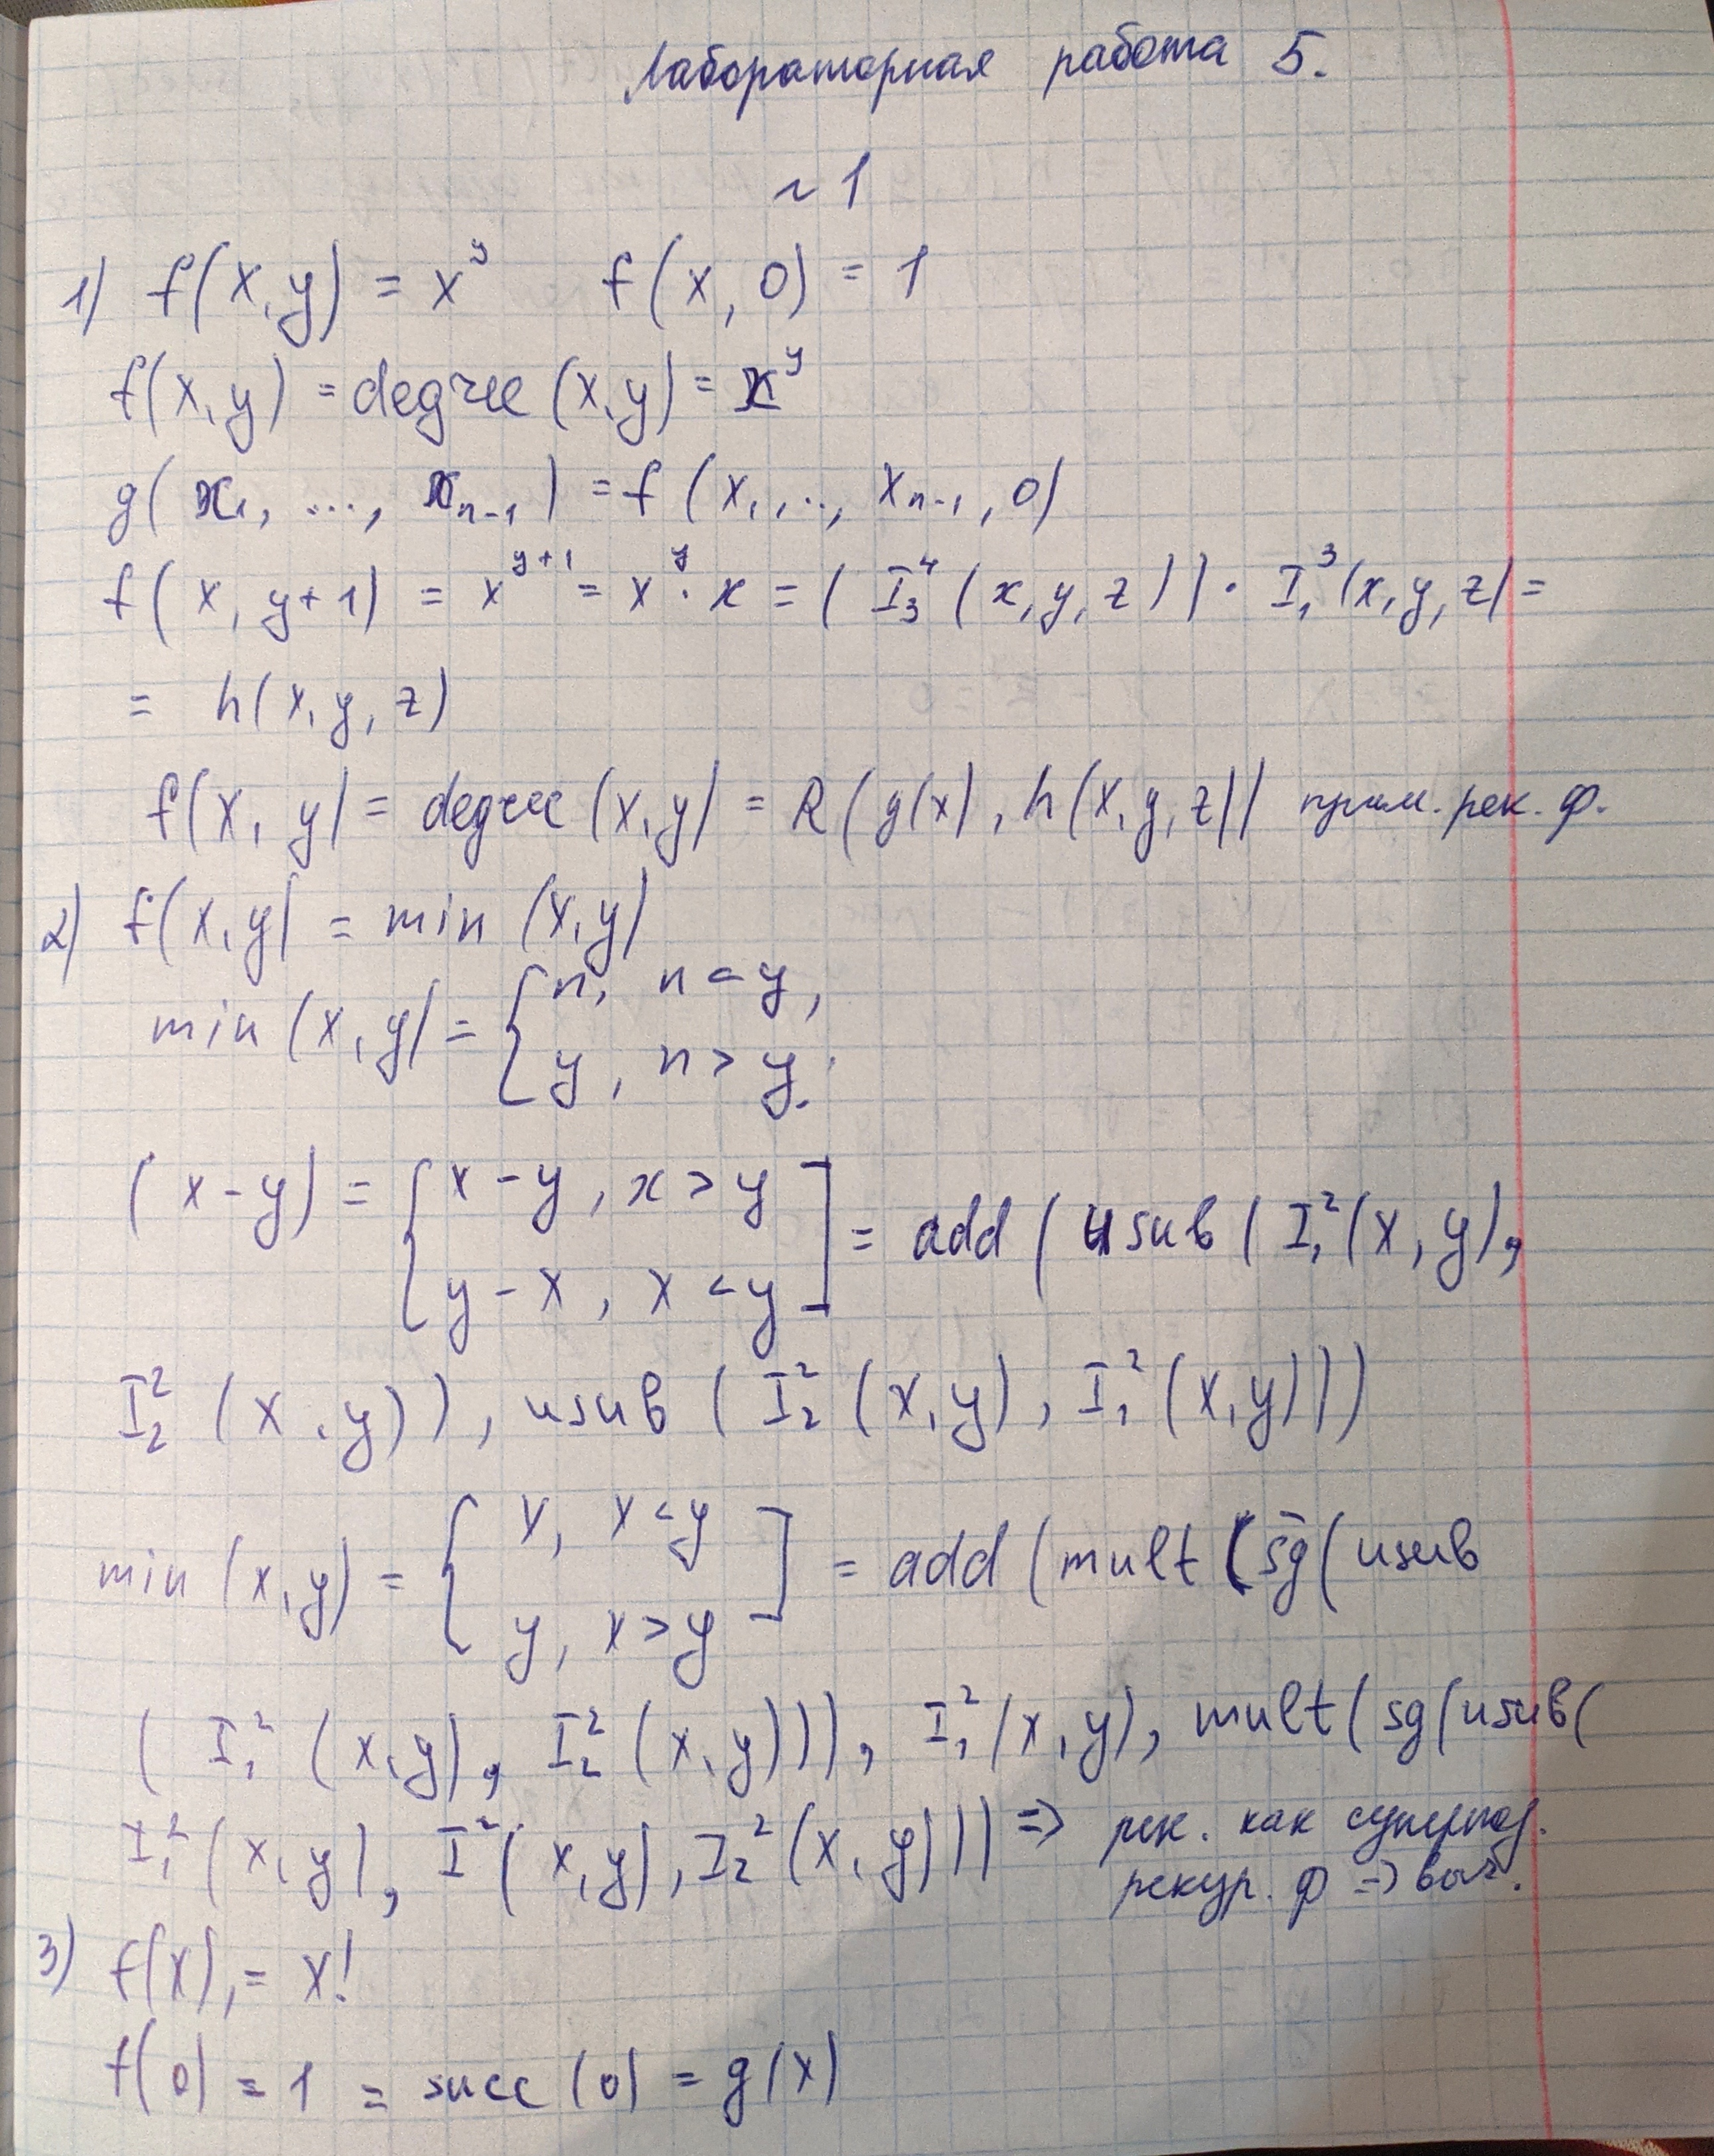 Лабораторная работа 5.
~ 1
1) f(x,y) = x^y f(x, 0) = 1
f(x,y) = degree (x,y) = x^y
g( x₁, ..., xₙ₋₁ ) = f (x₁, .., xₙ₋₁, 0)
f( x, y+1) = x^{y+1} = x^y · x = ( I₃⁴ (x, y, z)) · I₁³ (x, y, z) =
= h(x, y, z)
f(x, y) = degree (x,y) = R (g(x), h(x,y,z)) прим. рек. ф.
2) f(x,y) = min (x,y)
min (x,y) = { n, n < y,
y, n > y.
(x-y) = { x-y, x > y
y-x, x < y ] = add ( usub ( I₁² (x, y),
I₂² (x, y)), usub ( I₂² (x,y), I₁² (x,y)))
min (x,y) = { x, x < y
y, x > y ] = add (mult (s̄g (usub
( I₁² (x,y), I₂² (x,y))), I₁² (x,y), mult (sg (usub (
I₁² (x,y), I² (x,y), I₂² (x,y))) => рек. как суперпоз.
рекур. ф => выч.
3) f(x), = x!
f(0) = 1 = succ (0) = g(x)